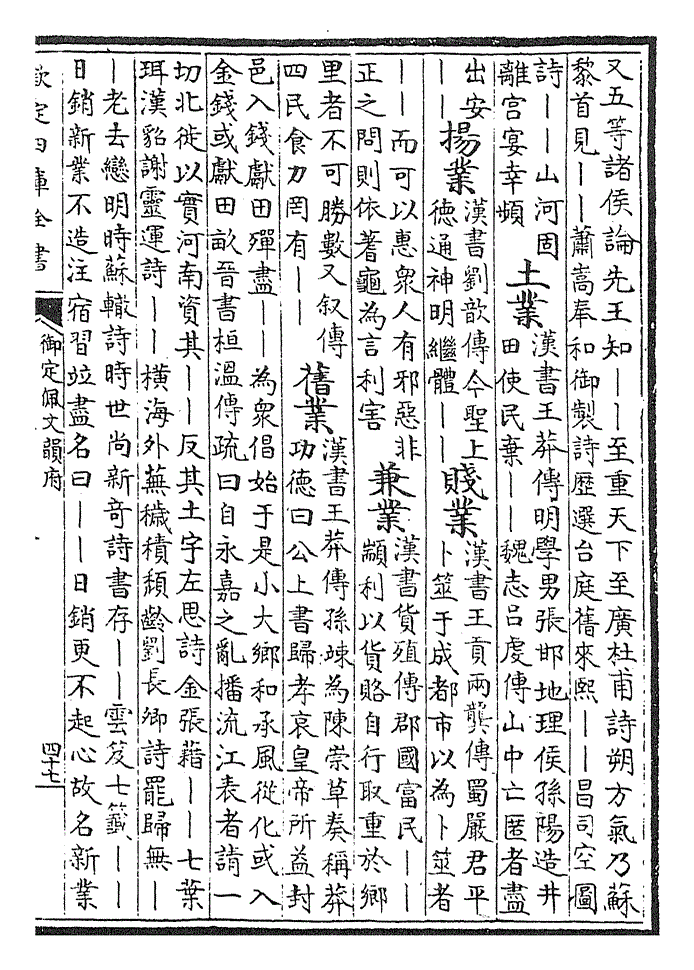 又五等諸侯論先王知||至重天下至廣杜甫詩朔方氣乃蘇
黎首見||蕭嵩奉和御製詩歴選台庭舊來熙||昌司空圖
詩||山河固
離宮宴幸頻
土業
漢書王莽傳明學男張邯地理侯孫陽造井
田使民棄||魏志吕䖍傳山中亡匿者盡
出安
||
揚業
漢書劉歆傳今聖上
德通神明繼體||
賤業
漢書王貢兩龔傳蜀嚴君平
卜筮于成都市以為卜筮者
||而可以惠衆人有邪惡非
正之問則依蓍龜為言利害
兼業
漢書貨殖傳郡國富民||
顓利以貨賂自行取重於鄉
里者不可勝數又叙傳
四民食力罔有||
舊業
漢書王莽傳孫竦為陳崇草奏稱莽
功德曰公上書歸孝哀皇帝所益封
邑入錢獻田殫盡||為衆倡始于是小大鄉和承風從化或入
金錢或獻田畝晉書桓溫傳疏曰自永嘉之亂播流江表者請一
切北徙以實河南資其||反其土宇左思詩金張藉||七葉
珥漢貂謝靈運詩||橫海外蕪穢積頹齡劉長卿詩罷歸無|
|老去戀明時蘇轍詩時世尚新奇詩書存||雲笈七籤||
日銷新業不造注宿習竝盡名曰||日銷更不起心故名新業
欽定四庫全書
御定佩文韻府
四十七